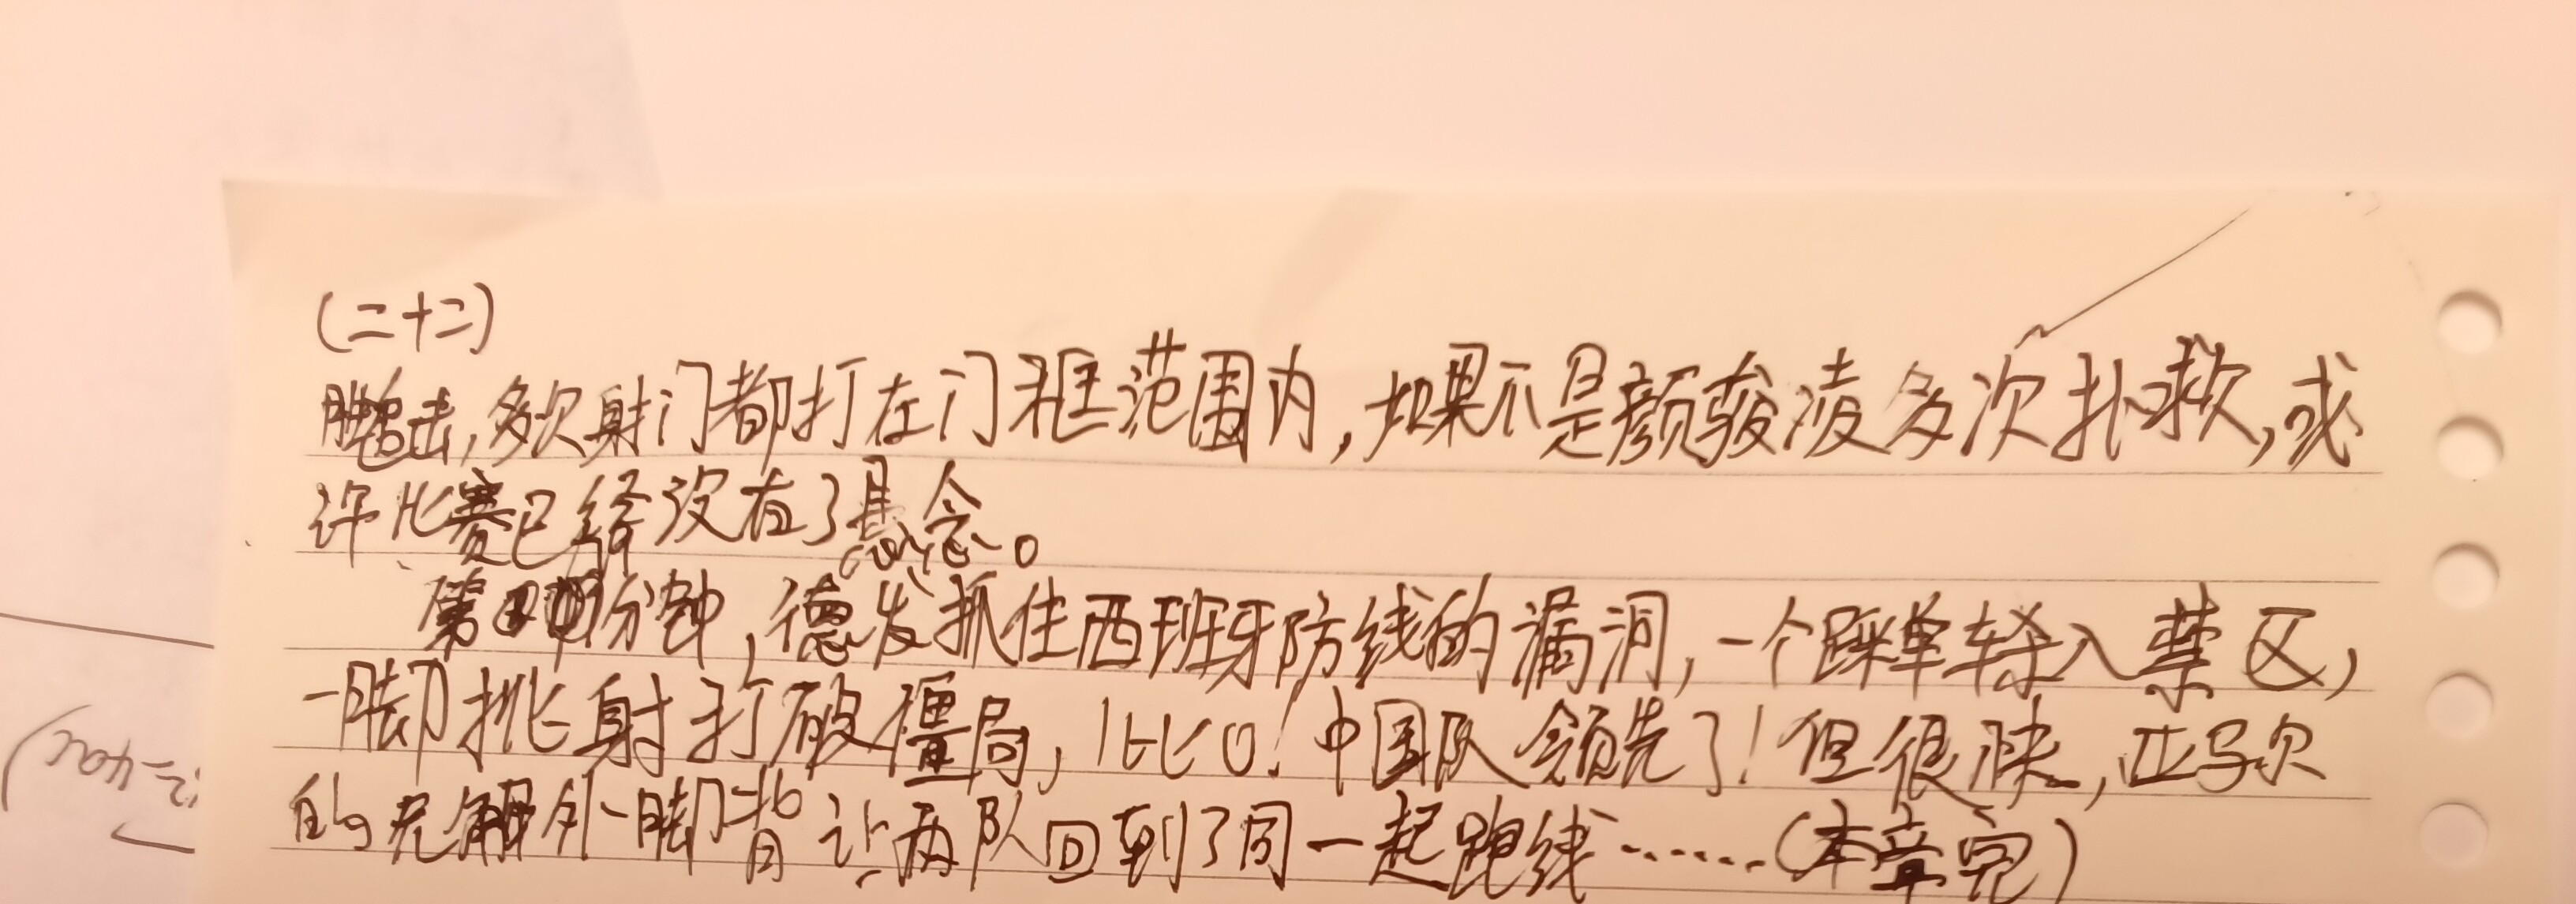 (二十二)
击,多次射门都打在门框范围内,如果不是颜骏凌多次扑救,或
许比赛已经没有了悬念。
第分钟,德发抓住西班牙防线的漏洞,一个踩单车杀入禁区,
一脚挑射打破僵局,1比0!中国队领先了!但很快,亚马尔
的无解外脚背让两队回到了同一起跑线……(本章完)